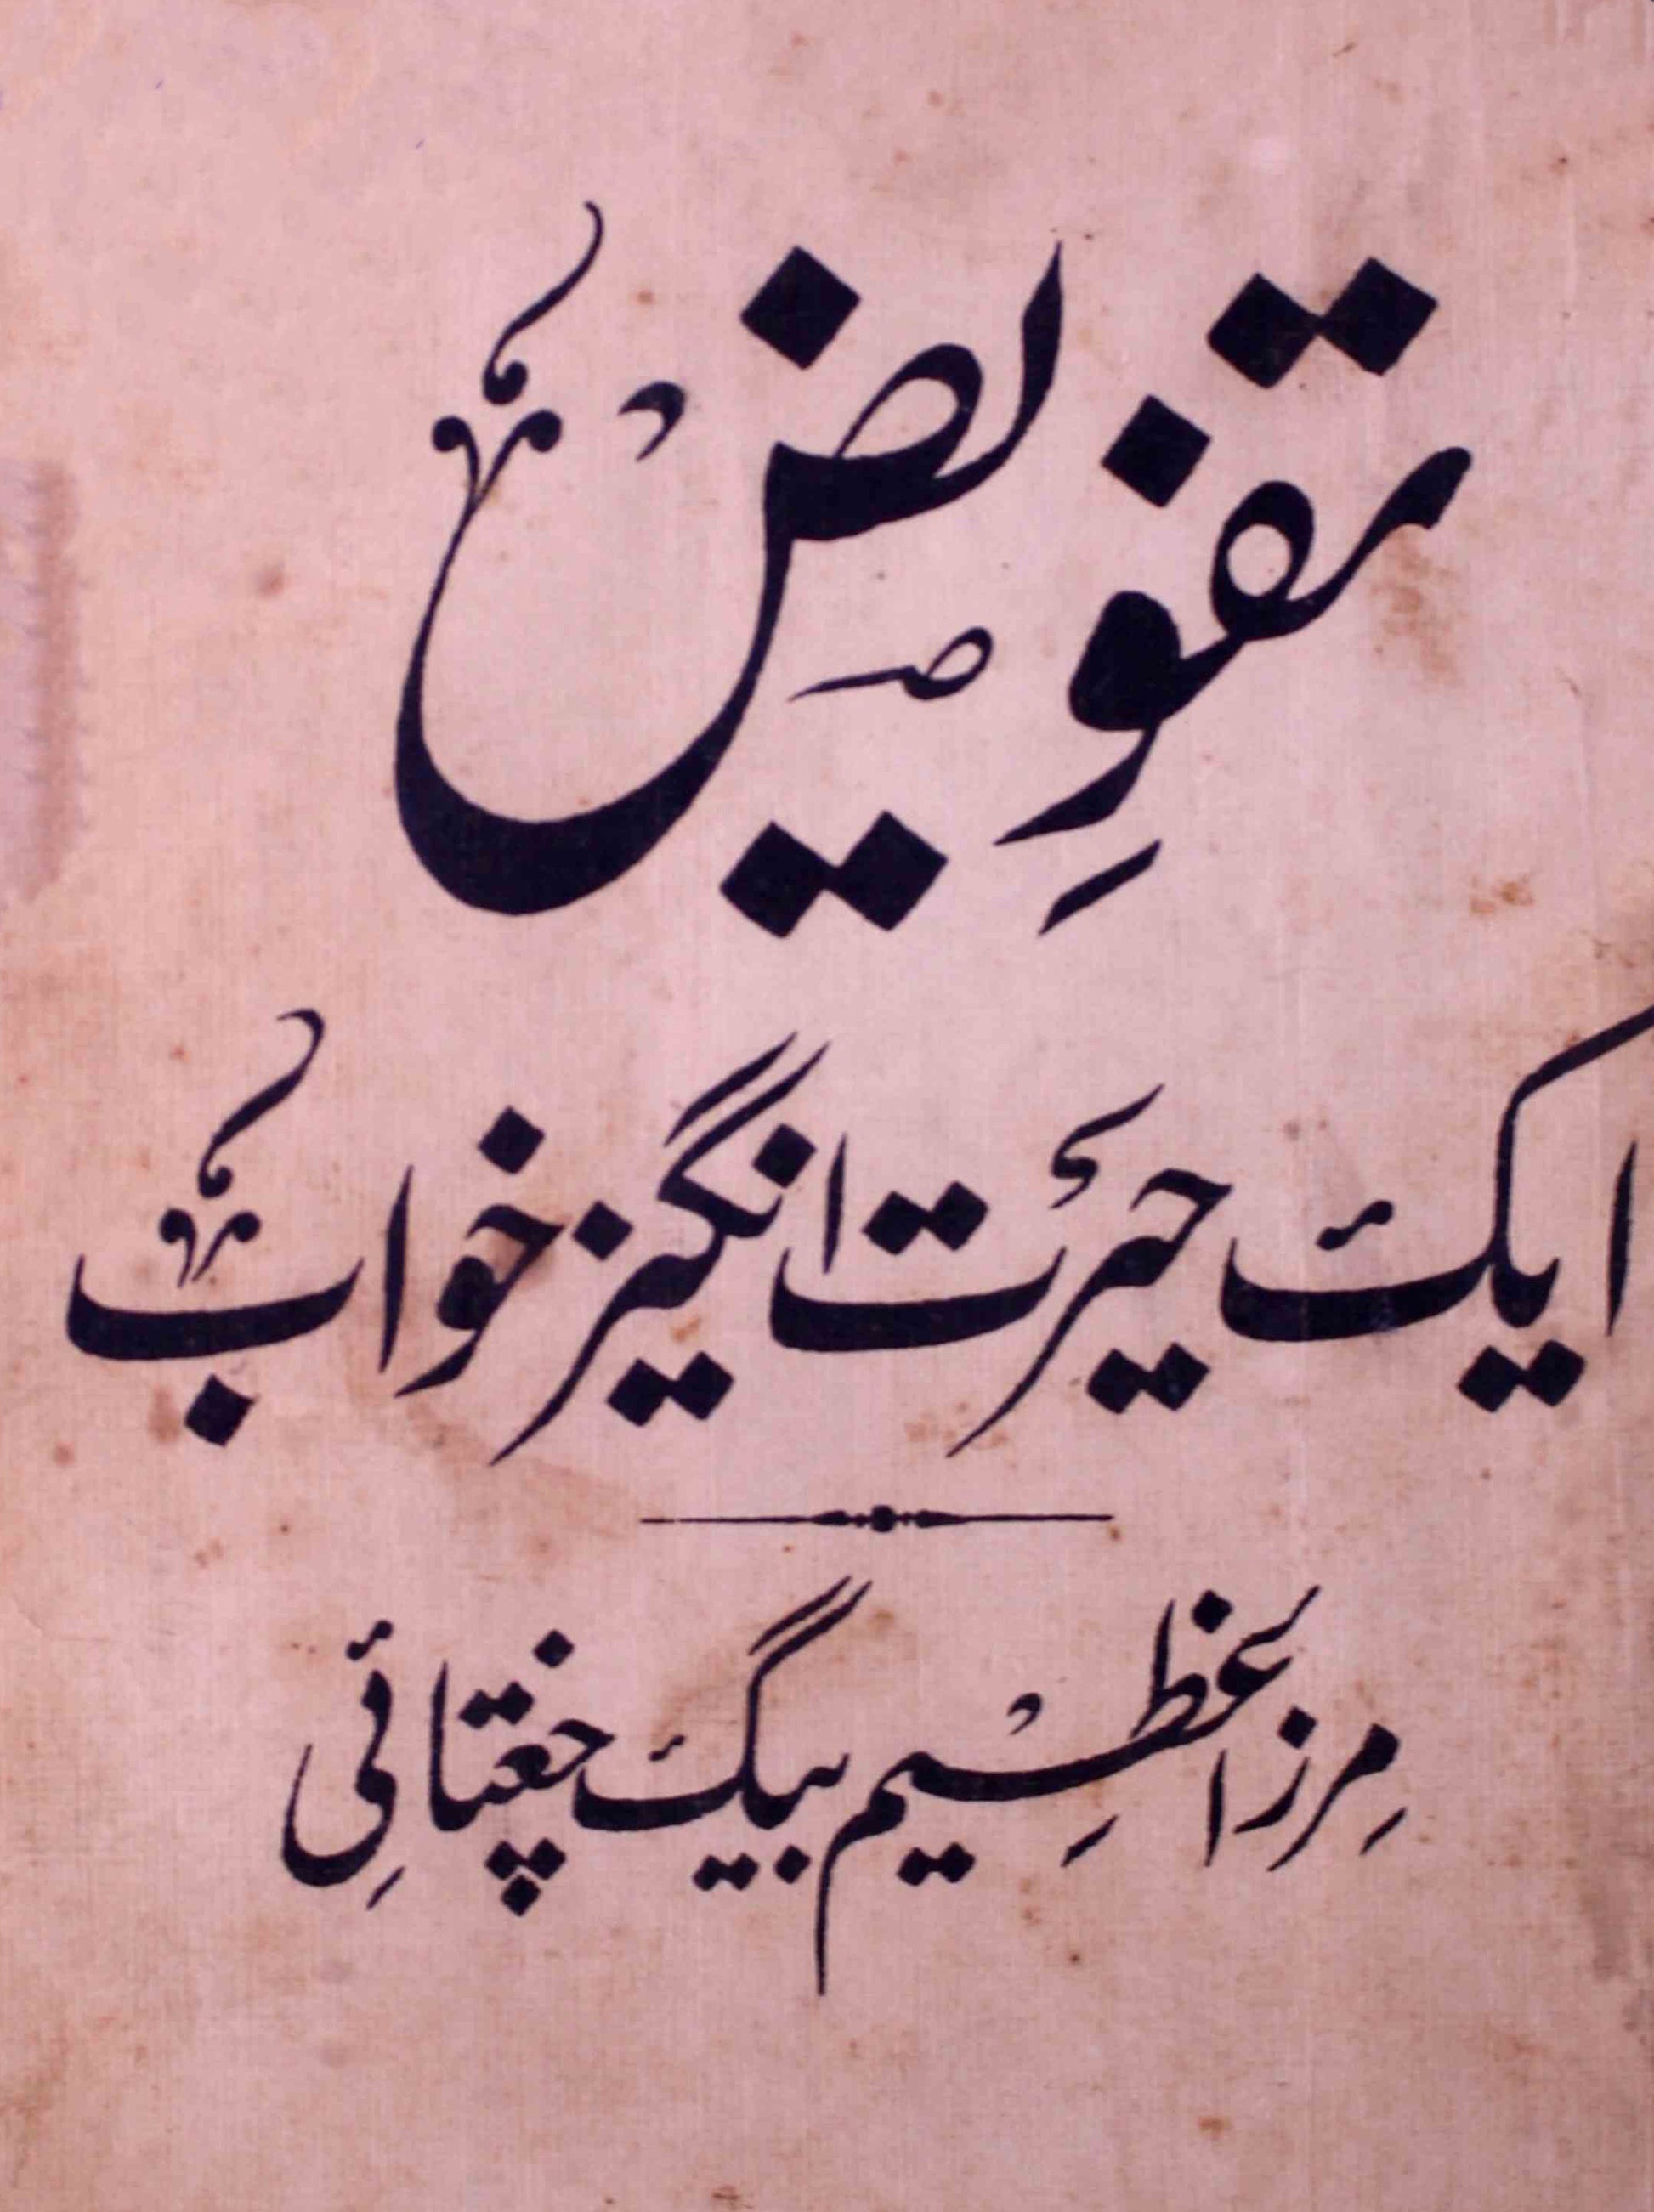 تفویض
ایک حیرت انگیز خواب
مرزا عظیم بیگ چغتائی